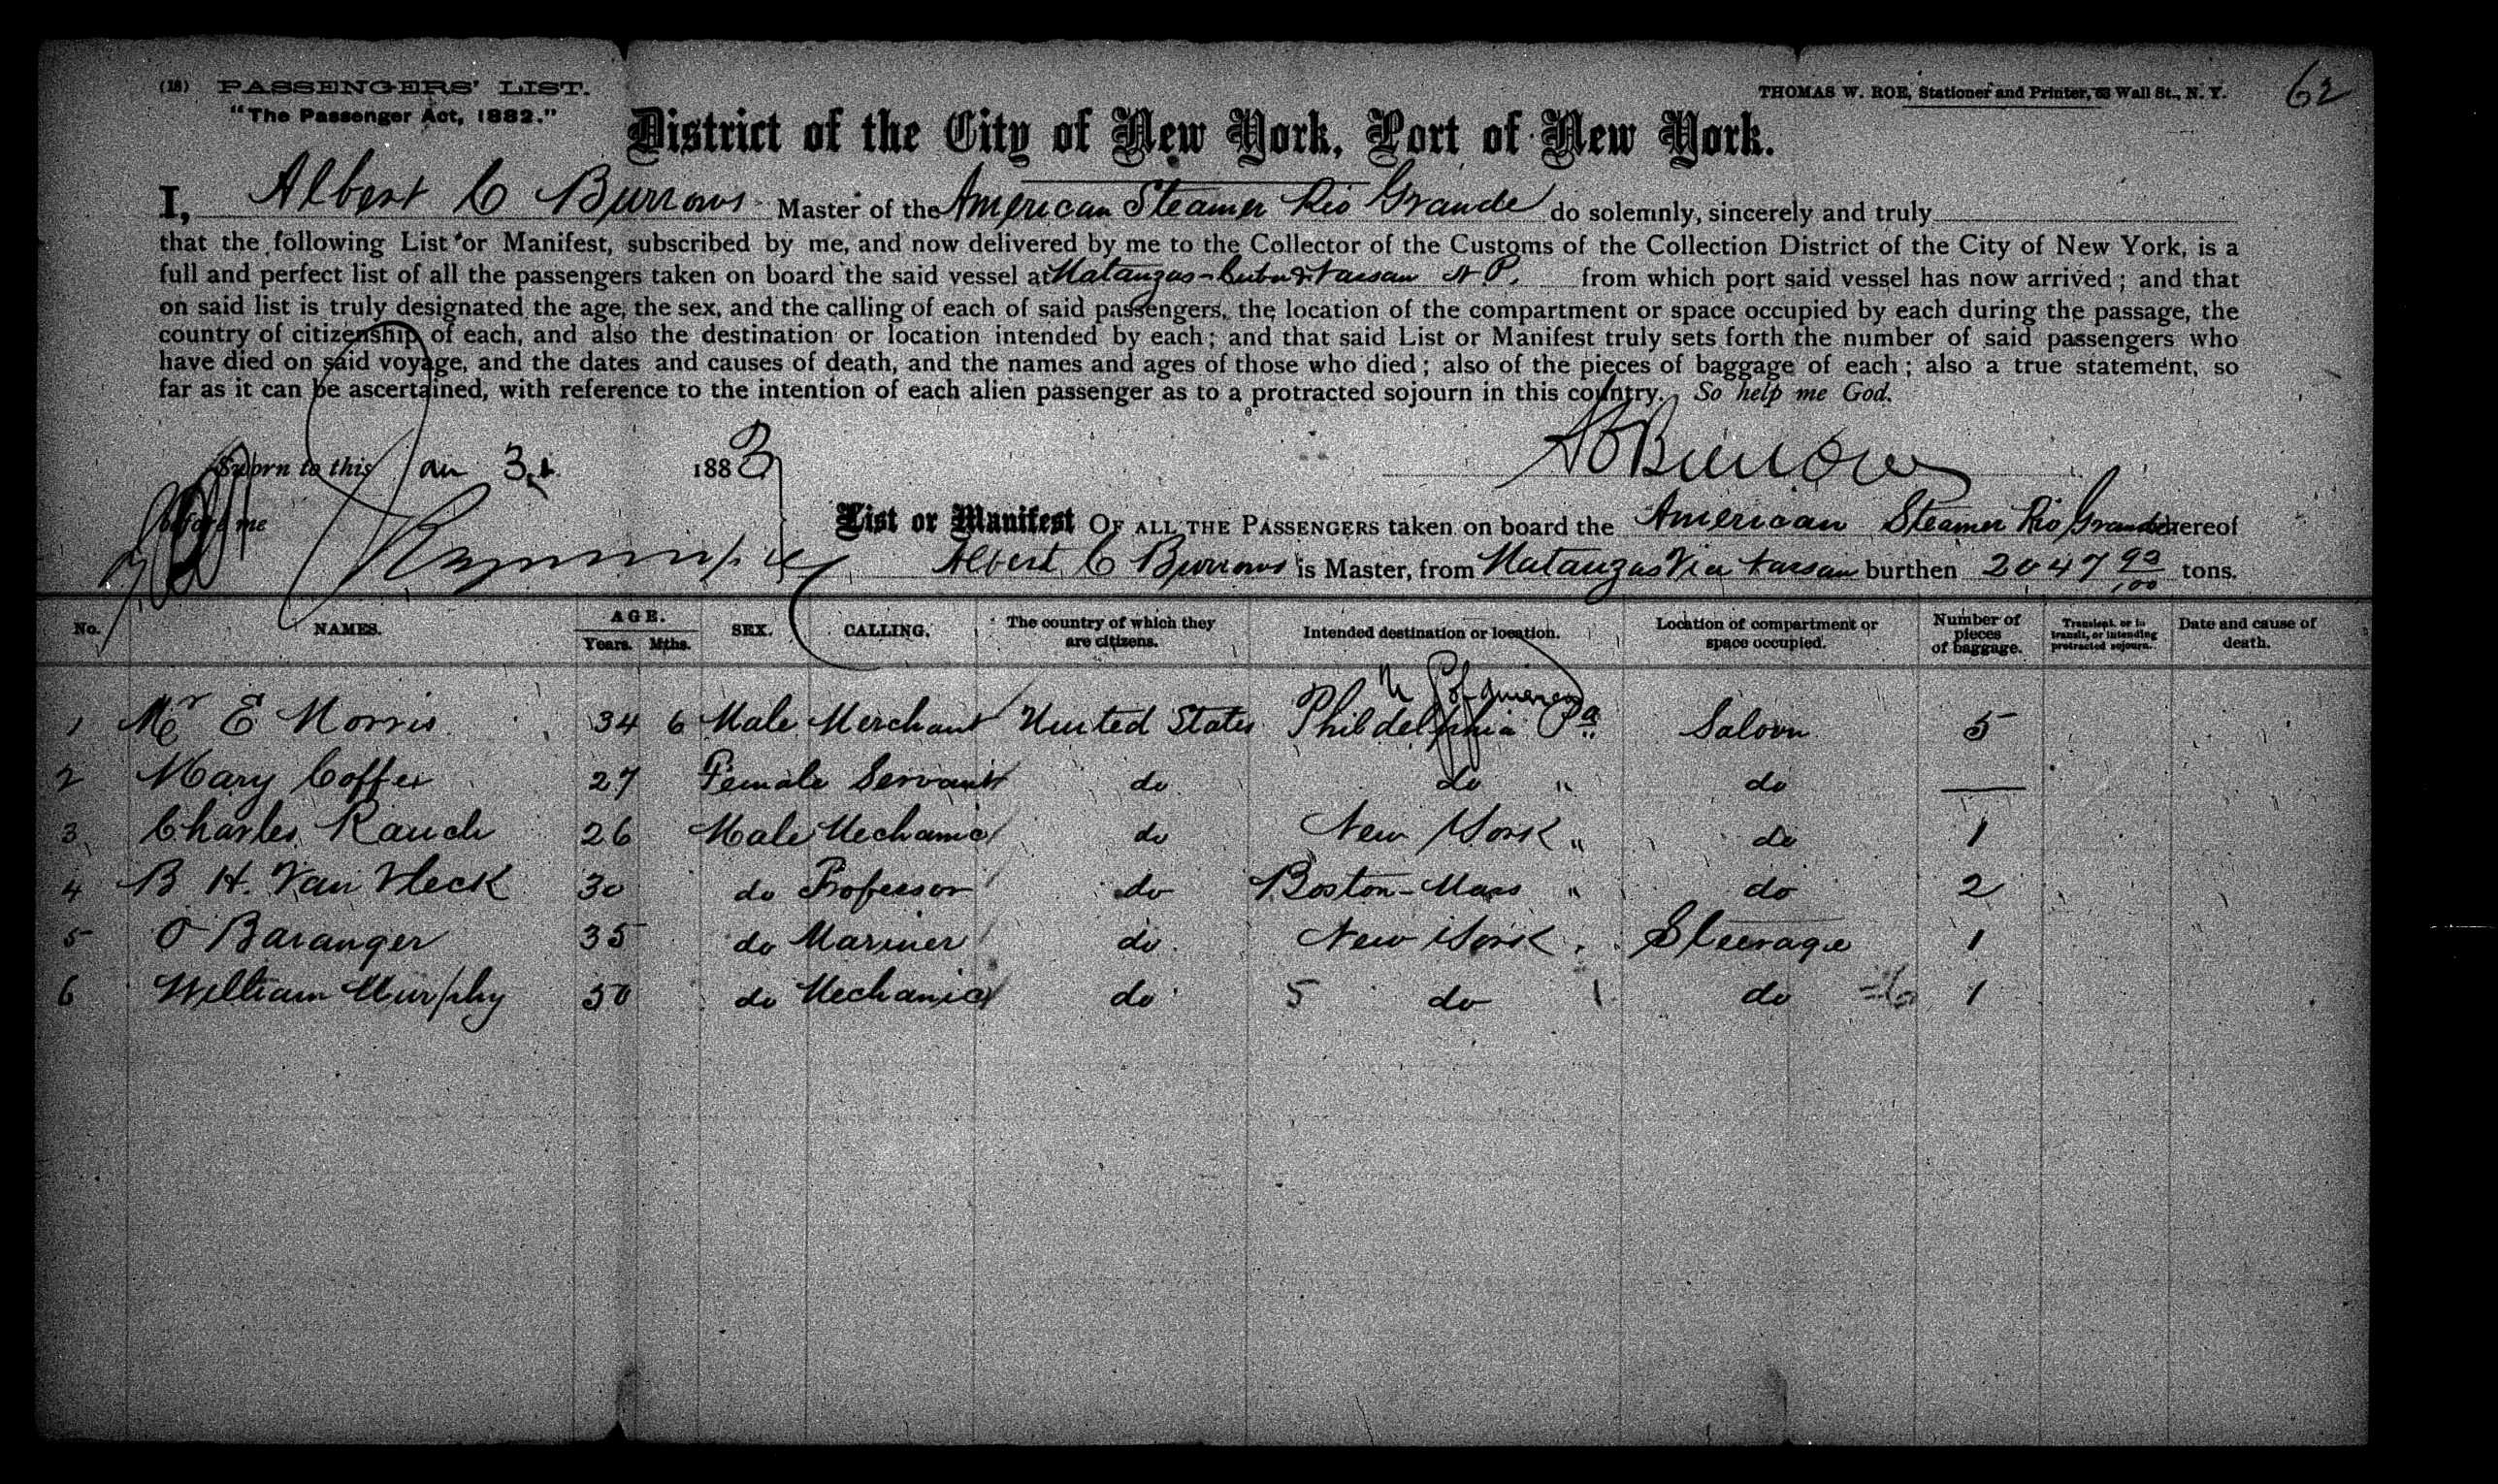 (18) PASSENGERS' LIST.
"The Passenger Act, 1882."
THOMAS W. ROE, Stationer and Printer, 63 Wall St., N. Y.
62
District of the City of New York, Port of New York.
I, Albert C Burrows Master of the American Steamer Rio Grande do solemnly, sincerely and truly
that the following List or Manifest, subscribed by me, and now delivered by me to the Collector of the Customs of the Collection District of the City of New York, is a
full and perfect list of all the passengers taken on board the said vessel at Matanzas-Cuba & Nassau N P. from which port said vessel has now arrived; and that
on said list is truly designated the age, the sex, and the calling of each of said passengers, the location of the compartment or space occupied by each during the passage, the
country of citizenship of each, and also the destination or location intended by each; and that said List or Manifest truly sets forth the number of said passengers who
have died on said voyage, and the dates and causes of death, and the names and ages of those who died; also of the pieces of baggage of each; also a true statement, so
far as it can be ascertained, with reference to the intention of each alien passenger as to a protracted sojourn in this country. So help me God.
Sworn to this Jan 31 1883
A C Burrows
before me
List or Manifest OF ALL THE PASSENGERS taken on board the American Steamer Rio Grande whereof
Albert C Burrows is Master, from Matanzas Via Nassau burthen 2047 92/100 tons.
No. NAMES. AGE. Years. Mths. SEX. CALLING. The country of which they are citizens. Intended destination or location. Location of compartment or space occupied. Number of pieces of baggage. Transient, or in transit, or intending protracted sojourn. Date and cause of death.
U S of America
1 Mr E Morris 34 6 Male Merchant United States Phildelphia Pa. Saloon 5
2 Mary Coffee 27 Female Servant do do " do —
3 Charles Rauch 26 Male Mechanic do New York " do 1
4 B H. Van Vleck 30 do Professor do Boston-Mass " do 2
5 O Baranger 35 do Mariner do New York Steerage 1
6 William Murphy 50 do Mechanic do 5 do do 1